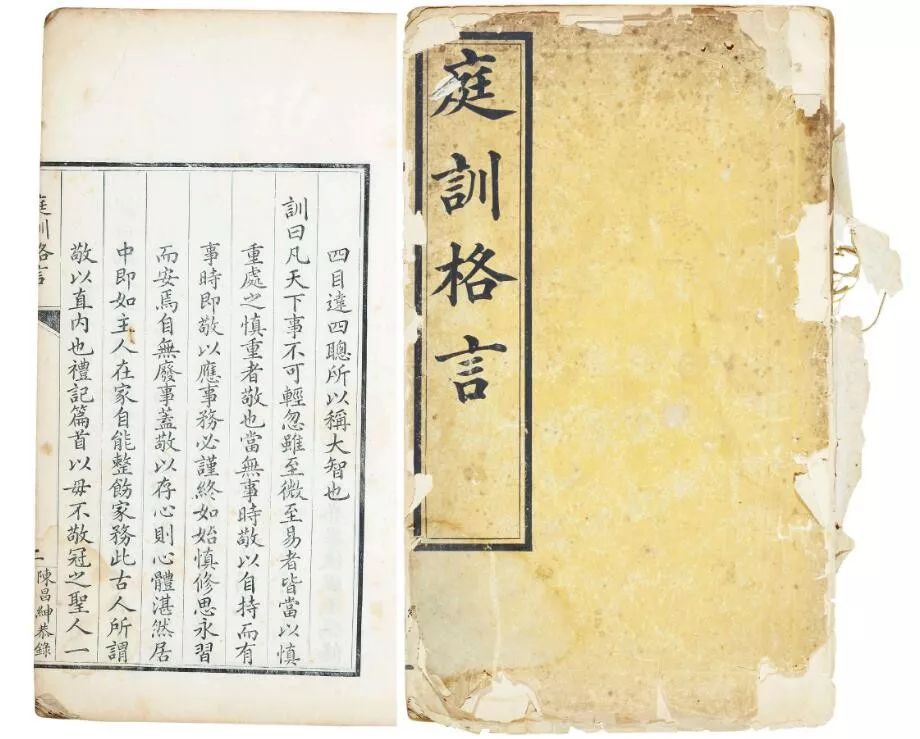 庭訓格言
四目達四聰所以稱大智也
訓曰凡天下事不可輕忽雖至微至易者皆當以慎
重處之慎重者敬也當無事時敬以自持而有
事時即敬以應事務必謹終如始慎修思永習
而安焉自無廢事蓋敬以存心則心體湛然居
中即如主人在家自能整飭家務此古人所謂
敬以直內也禮記篇首以毋不敬冠之聖人一
庭訓格言
二
陳昌紳恭錄